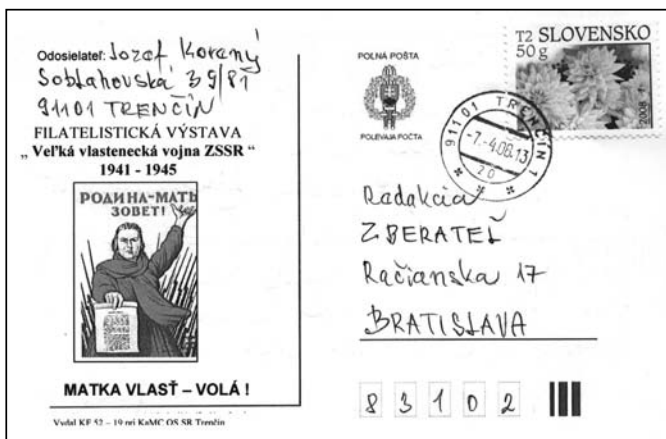 Odosielateľ: Jozef Koraný
Soblahovská 39/81
91101 TRENČÍN
FILATELISTICKÁ VÝSTAVA
„ Veľká vlastenecká vojna ZSSR “
1941 - 1945
РОДИНА-МАТЬ
ЗОВЕТ!
MATKA VLASŤ – VOLÁ !
Vydal KF 52 – 19 pri KaMC OS SR Trenčín
POĽNÁ POŠTA
POLEVAJA POČTA
T2 SLOVENSKO
50 g
2008
911 01 TRENČÍN 1
-7.-4.08.13
20
Redakcia
ZBERATEĽ
Račianska 17
BRATISLAVA
8 3 1 0 2